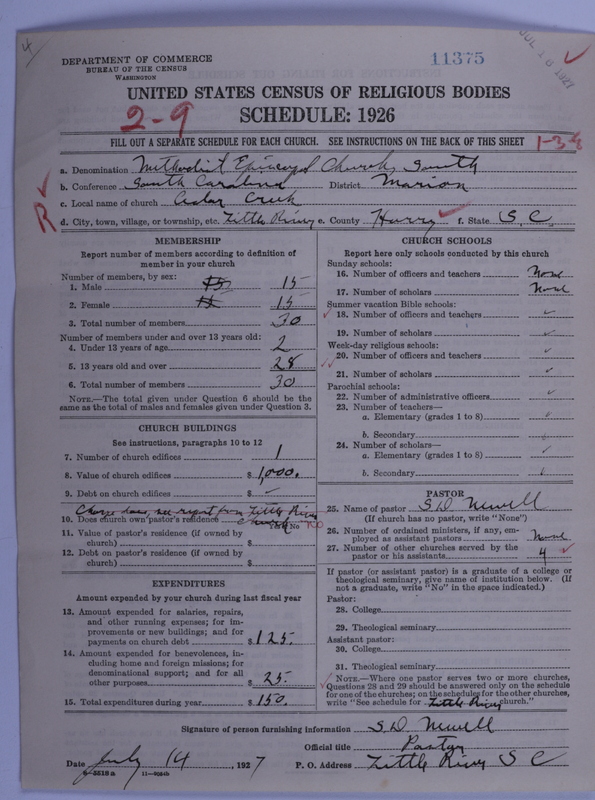 4
DEPARTMENT OF COMMERCE
BUREAU OF THE CENSUS
WASHINGTON
11375
JUL 18 1927
UNITED STATES CENSUS OF RELIGIOUS BODIES
SCHEDULE: 1926
2-9
FILL OUT A SEPARATE SCHEDULE FOR EACH CHURCH. SEE INSTRUCTIONS ON THE BACK OF THIS SHEET
a. Denomination Methodist Episcopal Church, South
b. Conference South Carolina District Marion
c. Local name of church Cedar Creek
d. City, town, village, or township, etc. Little River e. County Horry f. State S.C.
R
MEMBERSHIP
Report number of members according to definition of
member in your church
Number of members, by sex:
1. Male 15 15
2. Female 15 15
3. Total number of members 30
Number of members under and over 13 years old:
4. Under 13 years of age 2
5. 13 years old and over 28
6. Total number of members 30
NOTE.—The total given under Question 6 should be the
same as the total of males and females given under Question 3.
CHURCH BUILDINGS
See instructions, paragraphs 10 to 12
7. Number of church edifices 1
8. Value of church edifices $ 1,000.
9. Debt on church edifices $ -
Charge does, see report from Little River
10. Does church own pastor's residence Church Yes or No
11. Value of pastor's residence (if owned by
church) $
12. Debt on pastor's residence (if owned by
church) $
EXPENDITURES
Amount expended by your church during last fiscal year
13. Amount expended for salaries, repairs,
and other running expenses; for im-
provements or new buildings; and for
payments on church debt $ 125.
14. Amount expended for benevolences, in-
cluding home and foreign missions; for
denominational support; and for all
other purposes $ 25.
15. Total expenditures during year $ 150.
CHURCH SCHOOLS
Report here only schools conducted by this church
Sunday schools:
16. Number of officers and teachers None
17. Number of scholars None
Summer vacation Bible schools:
18. Number of officers and teachers
19. Number of scholars
Week-day religious schools:
20. Number of officers and teachers
21. Number of scholars
Parochial schools:
22. Number of administrative officers
23. Number of teachers—
a. Elementary (grades 1 to 8)
b. Secondary
24. Number of scholars—
a. Elementary (grades 1 to 8)
b. Secondary
PASTOR
25. Name of pastor S. D. Newell
(If church has no pastor, write "None")
26. Number of ordained ministers, if any, em-
ployed as assistant pastors None
27. Number of other churches served by the
pastor or his assistants 4
If pastor (or assistant pastor) is a graduate of a college or
theological seminary, give name of institution below. (If
not a graduate, write "No" in the space indicated.)
Pastor:
28. College
29. Theological seminary
Assistant pastor:
30. College
31. Theological seminary
NOTE.—Where one pastor serves two or more churches,
Questions 28 and 29 should be answered only on the schedule
for one of the churches; on the schedules for the other churches,
write "See schedule for Little River church."
Signature of person furnishing information S. D. Newell
Official title Pastor
Date July 14, 1927 P. O. Address Little River S C